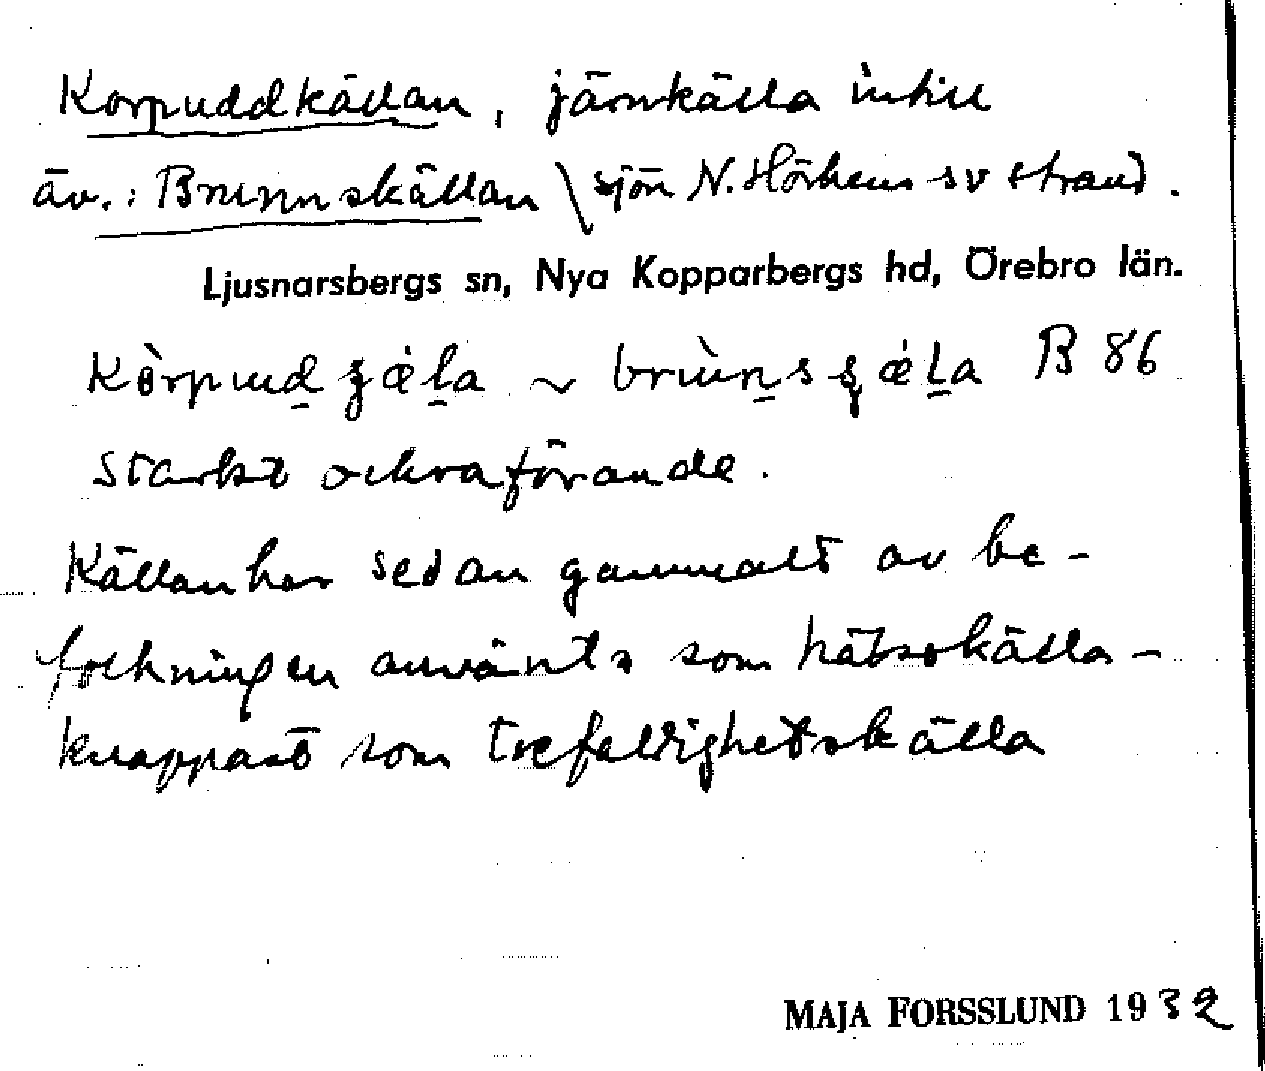 Korpuddkällan, järnkälla intill
äv.: Brunnskällan \ sjön N. Hörkens sv strand.
Ljusnarsbergs sn, Nya Kopparbergs hd, Örebro län.
B 86
starkt ockraförande.
Källan har sedan gammalt av be-
folkningen använts som hälsokälla -
knappast som trefaldighetskälla
MAJA FORSSLUND 1932